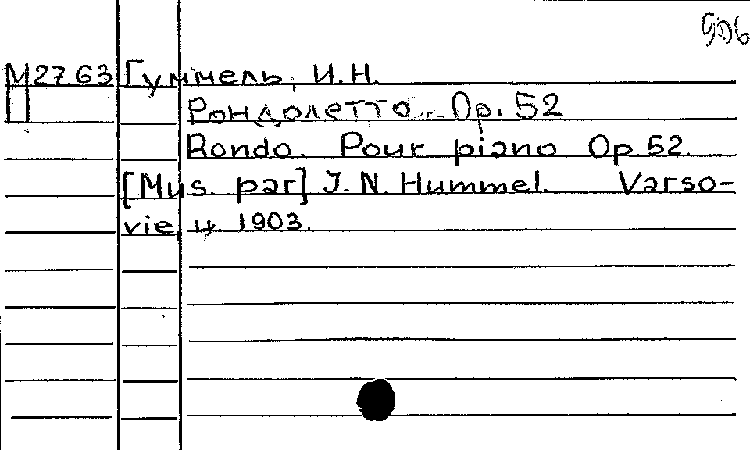 906
М2763 Гуммель, И.Н.
П Рондолетто. Ор. 52
Rondo. Pour piano Op 52.
[Mus. par] J. N. Hummel. Varso-
vie, ч. 1903.